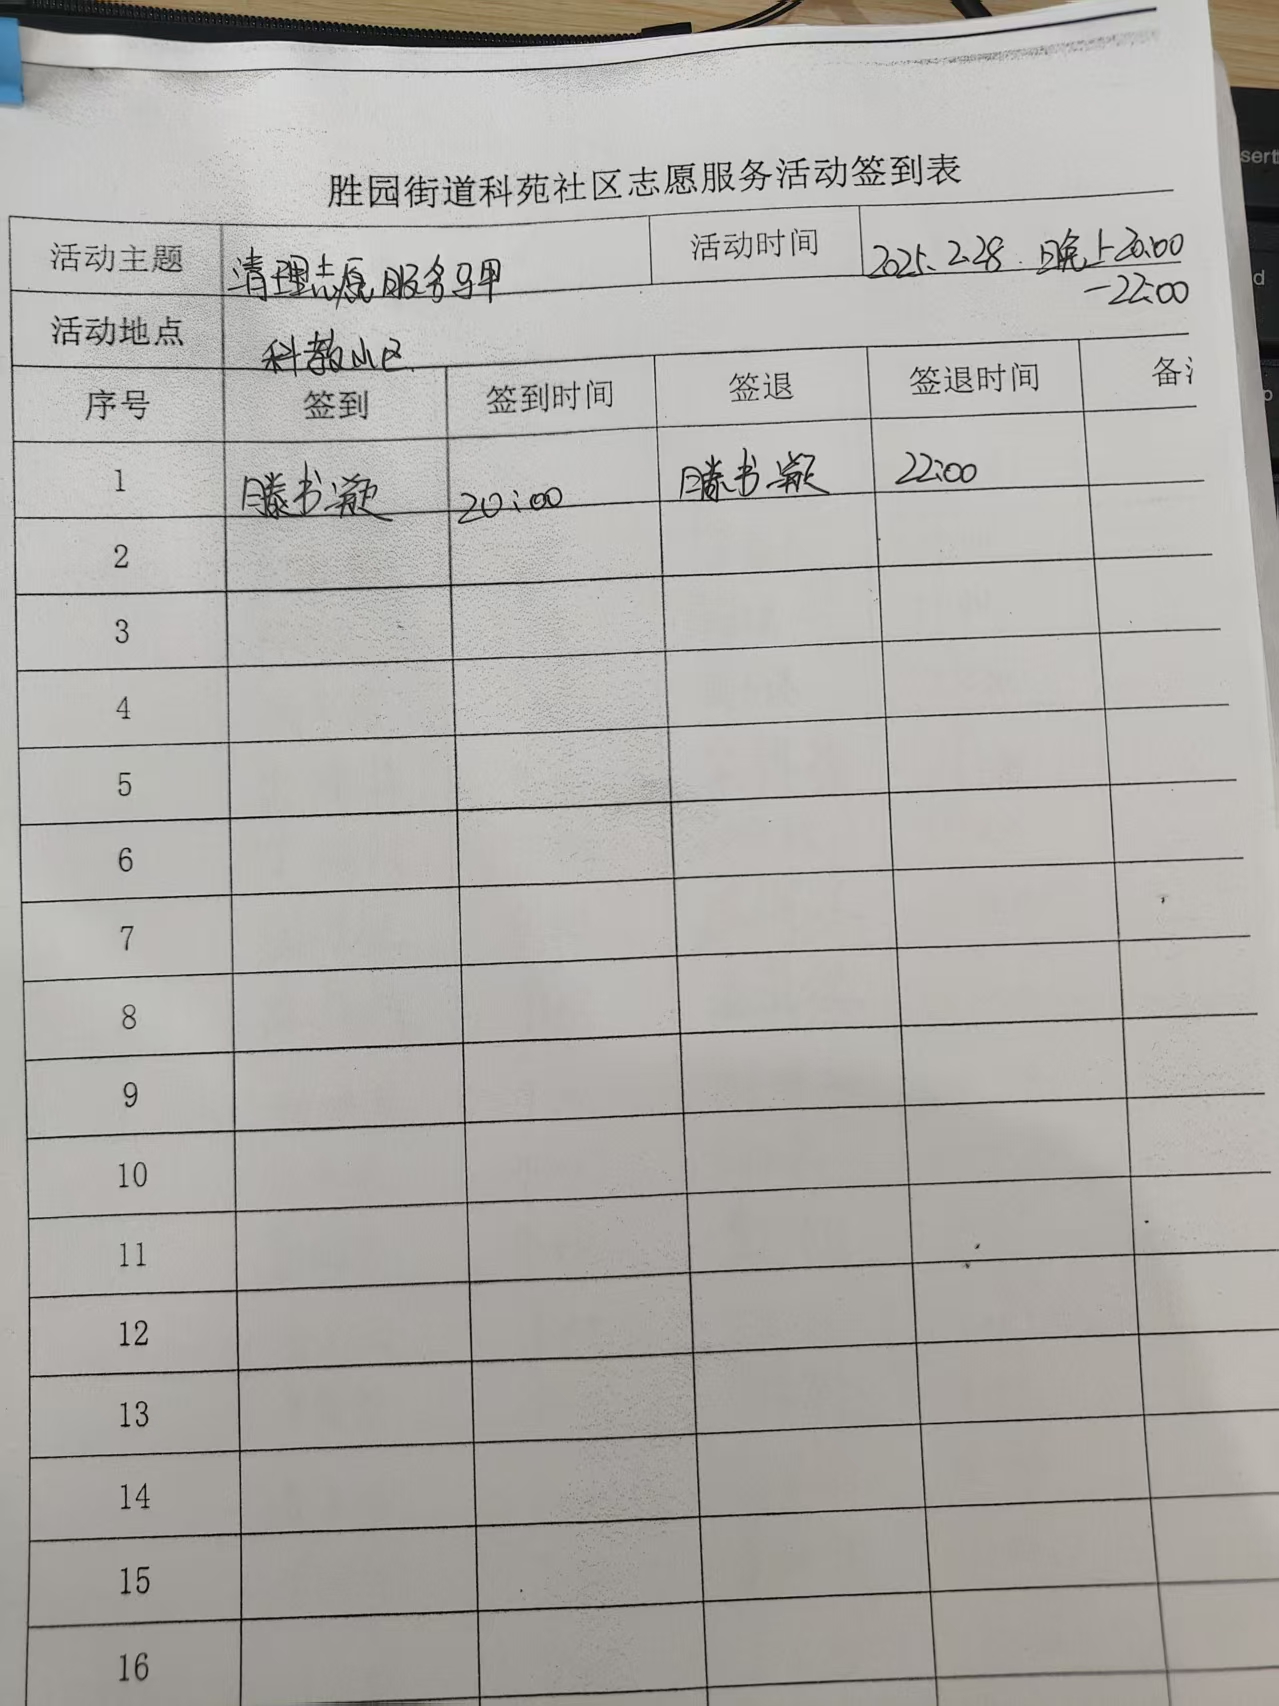 胜园街道科苑社区志愿服务活动签到表
活动主题 清理志愿服务马甲 活动时间 2025.2.28 晚上20:00
-22:00
活动地点 科教小区
序号 签到 签到时间 签退 签退时间 备
1 滕书 20:00 滕书 22:00
2
3
4
5
6
7
8
9
10
11
12
13
14
15
16
sert
d